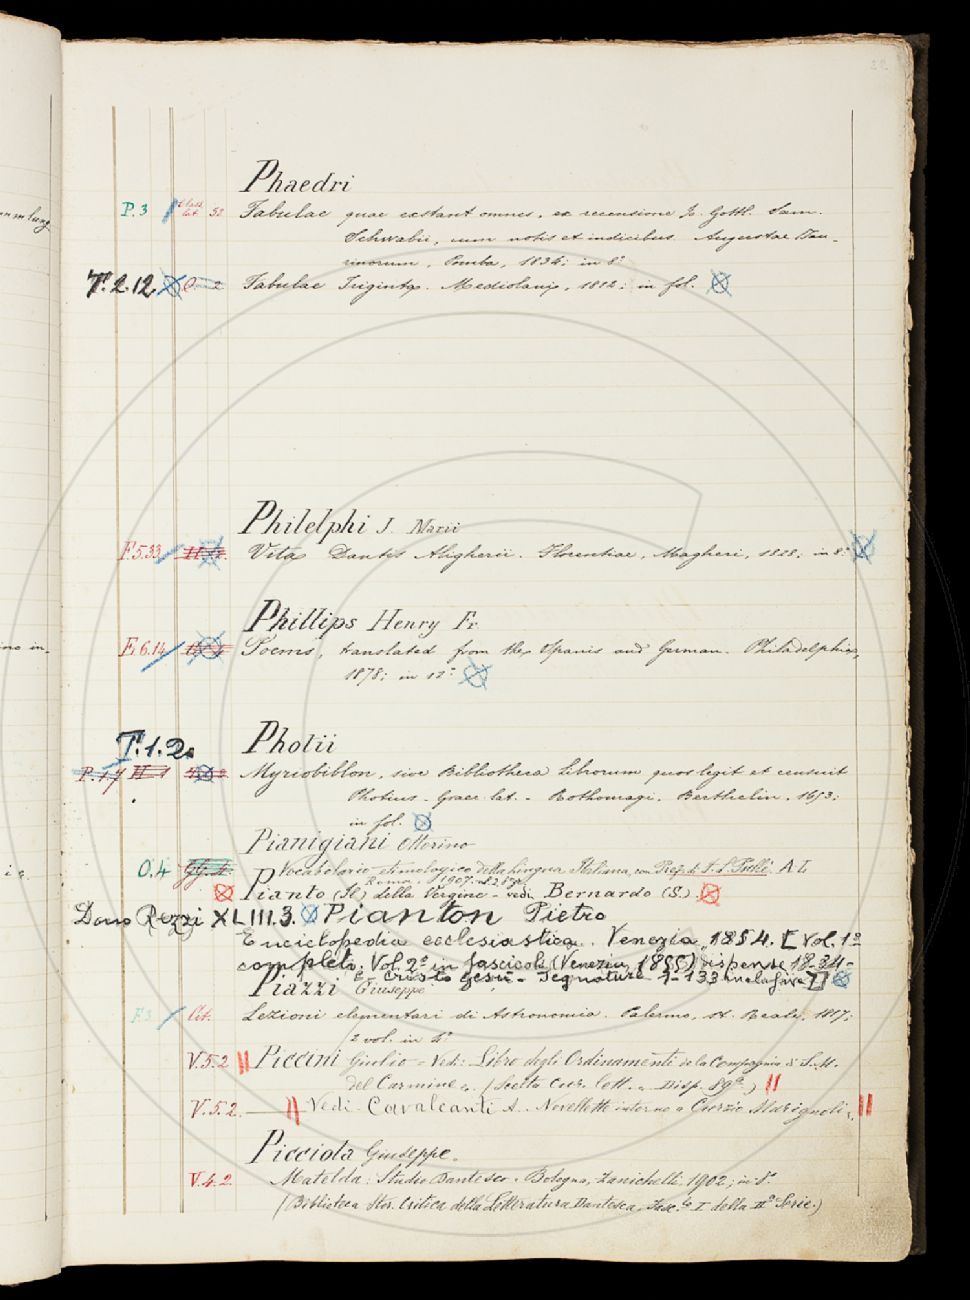 22
Phaedri
P. 3 Class. lat. 52 Fabulae quae exstant omnes, ex recensione J. Gottl. Sam.
Schwabii, cum notis et indicibus. Augustae Tau-
rinorum, Pomba, 1834; in 8°
T. 2. 12 O 2 Fabulae Triginta. Mediolani, 1812; in fol.
Philelphi J. Marii
F 5. 33 Vita Dantis Aligherii. Florentiae, Magheri, 1828; in 8°
Phillips Henry Fr.
E 6. 14 Poems, translated from the Spanis and German. Philadelphia,
1878; in 12°
T. 1. 2.
Photii
P. 1. 7 Myriobiblon, sive Bibliotheca librorum quos legit et censuit
Photius. Graec. lat. - Rothomagi, Berthelin, 1653;
in fol.
Pianigiani Ottorino
O. 4 Vocabolario etimologico della Lingua Italiana, con Pref. di F. L. Pullé. A-L
Roma, 1907.
Pianto (Il) della Vergine - vedi Bernardo (S.)
Dono Rezzi XLIII. 3. Pianton Pietro
Enciclopedia ecclesiastica. Venezia, 1854. [Vol. 1°
completo. Vol. 2° in fascicoli (Venezia, 1855) dispense 18-34-
Cristo Gesù - Segnature 1-133
Piazzi Giuseppe
F 3 Lezioni elementari di Astronomia. Palermo, St. Reale, 1817;
2 vol. in 4°
V. 5. 2 Piccini Giulio - Vedi: Libro degli Ordinamenti de la Compagnia di S. M.
del Carmine. (Scelta Cur. Lett. - Disp. 89a)
V. 5. 2. Vedi Cavalcanti A. Novellette intorno a Curzio Marignoli.
Picciola Giuseppe.
V. 4. 2 Matelda: Studio Dantesco. Bologna, Zanichelli 1902; in 8°
(Biblioteca Stor. Critica della Letteratura Dantesca, Fasc.° I della IIa Serie.)